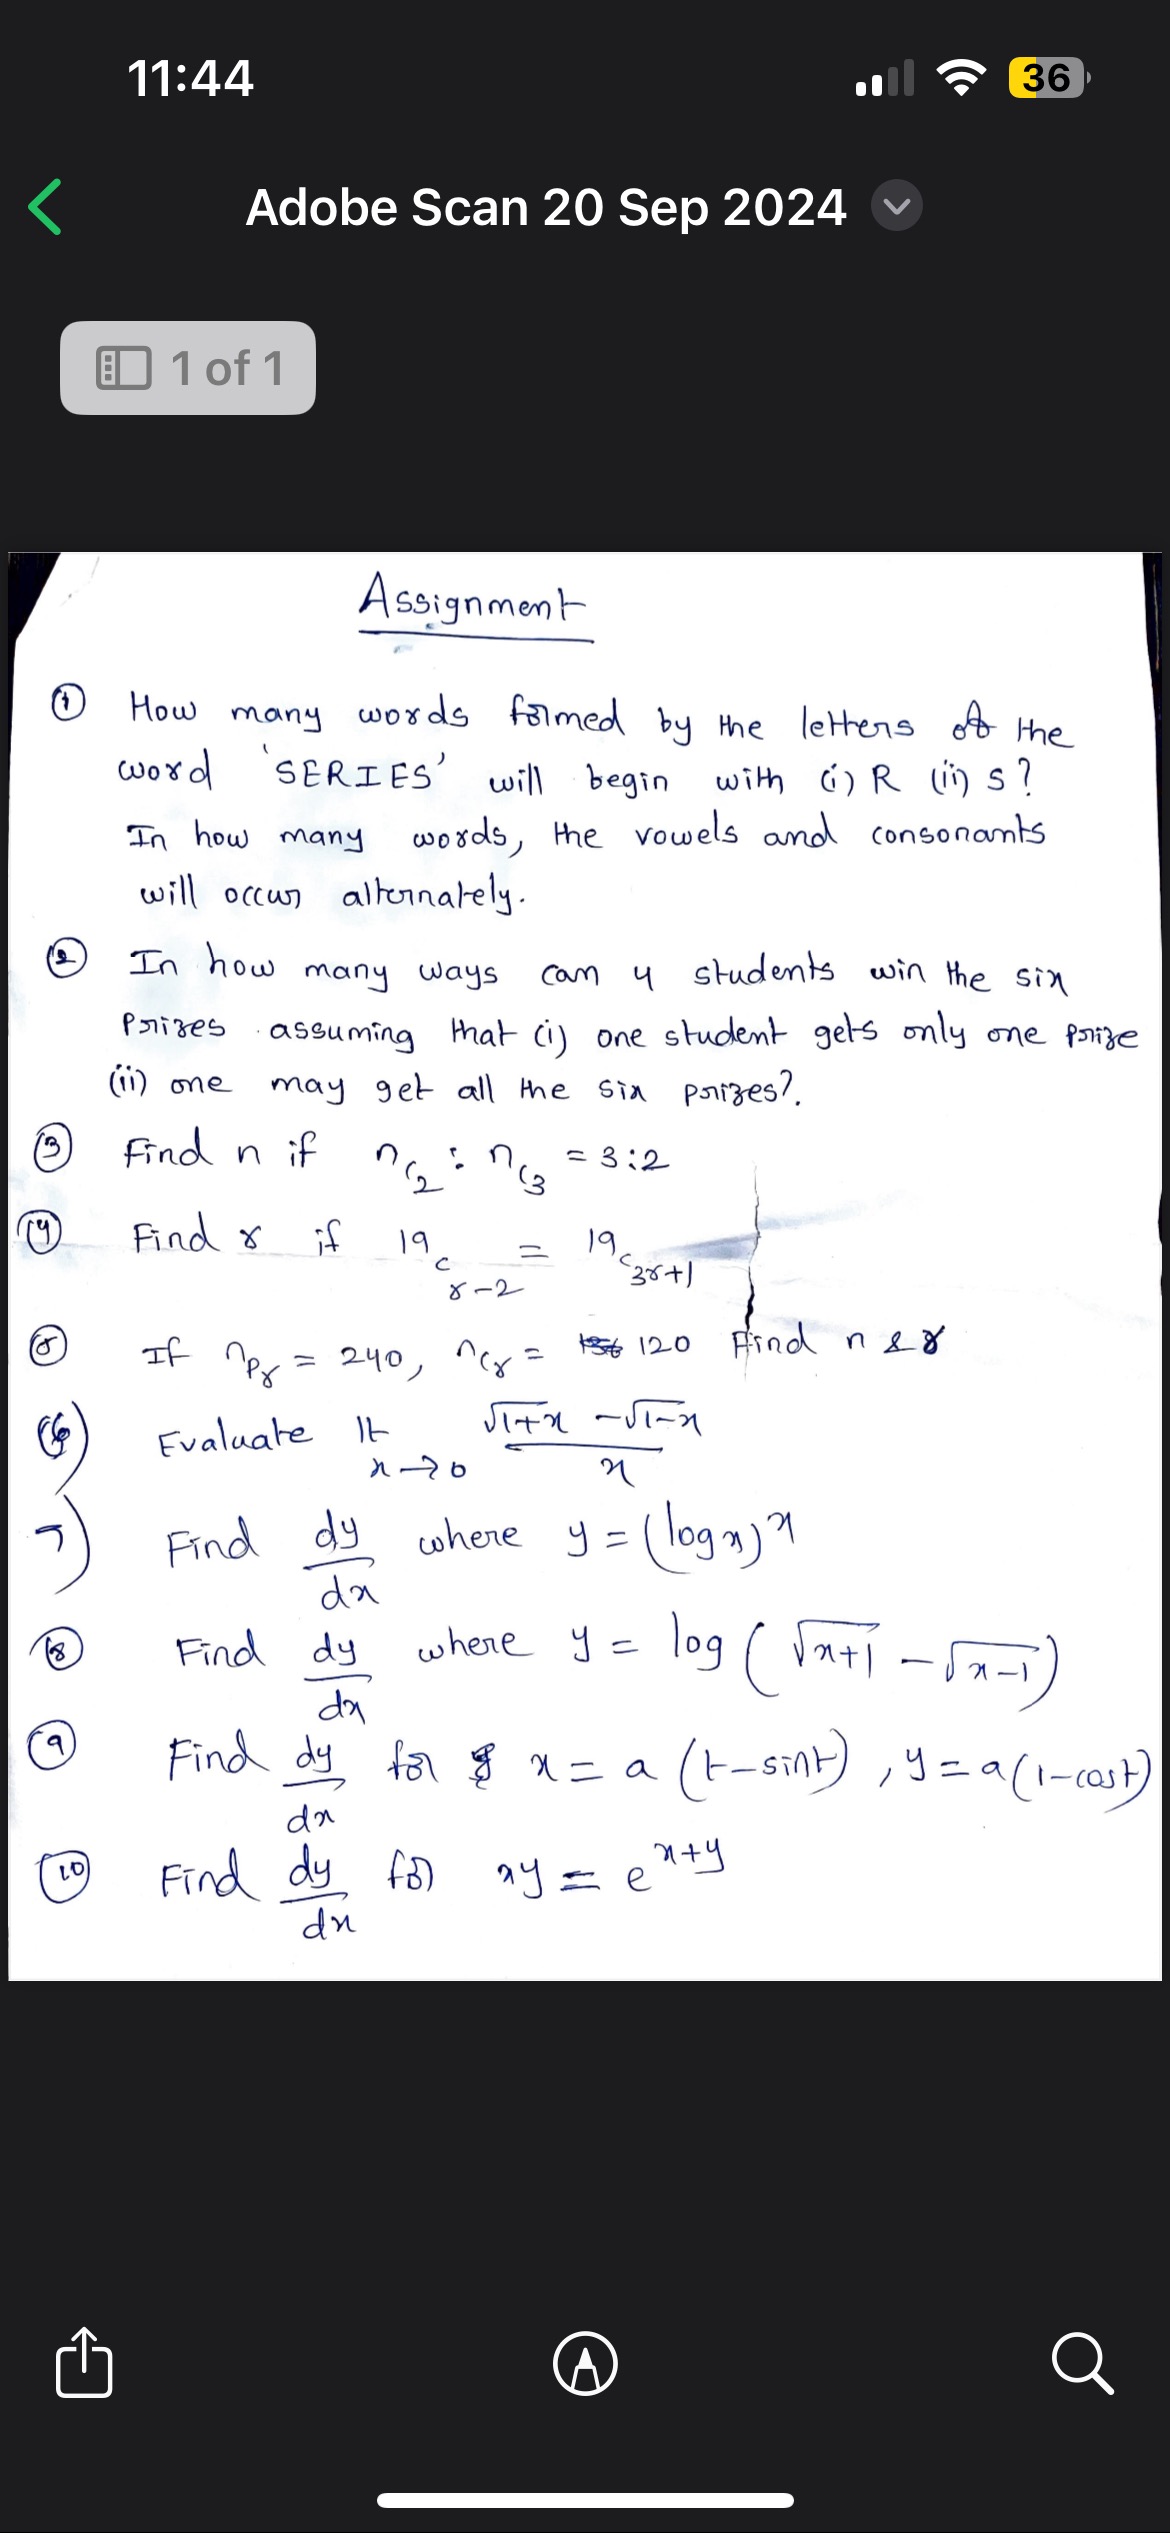 11:44
36
Adobe Scan 20 Sep 2024
1 of 1
Assignment
① How many words formed by the letters of the
word 'SERIES' will begin with (i) R (ii) S?
In how many words, the vowels and consonants
will occur alternately.
② In how many ways can 4 students win the six
prizes assuming that (i) one student gets only one prize
(ii) one may get all the six prizes?.
③ Find n if nC2 : nC3 = 3:2
④ Find r if 19C r-2 = 19C 3r+1
⑤ If nPr = 240, nCr = 120 Find n & r
⑥ Evaluate lt x→0 (√1+x - √1-x) / x
7) Find dy/dx where y = (log x)^x
⑧ Find dy/dx where y = log (√x+1 - √x-1)
⑨ Find dy/dx for x = a (t-sint), y = a(1-cost)
⑩ Find dy/dx for xy = e^x+y